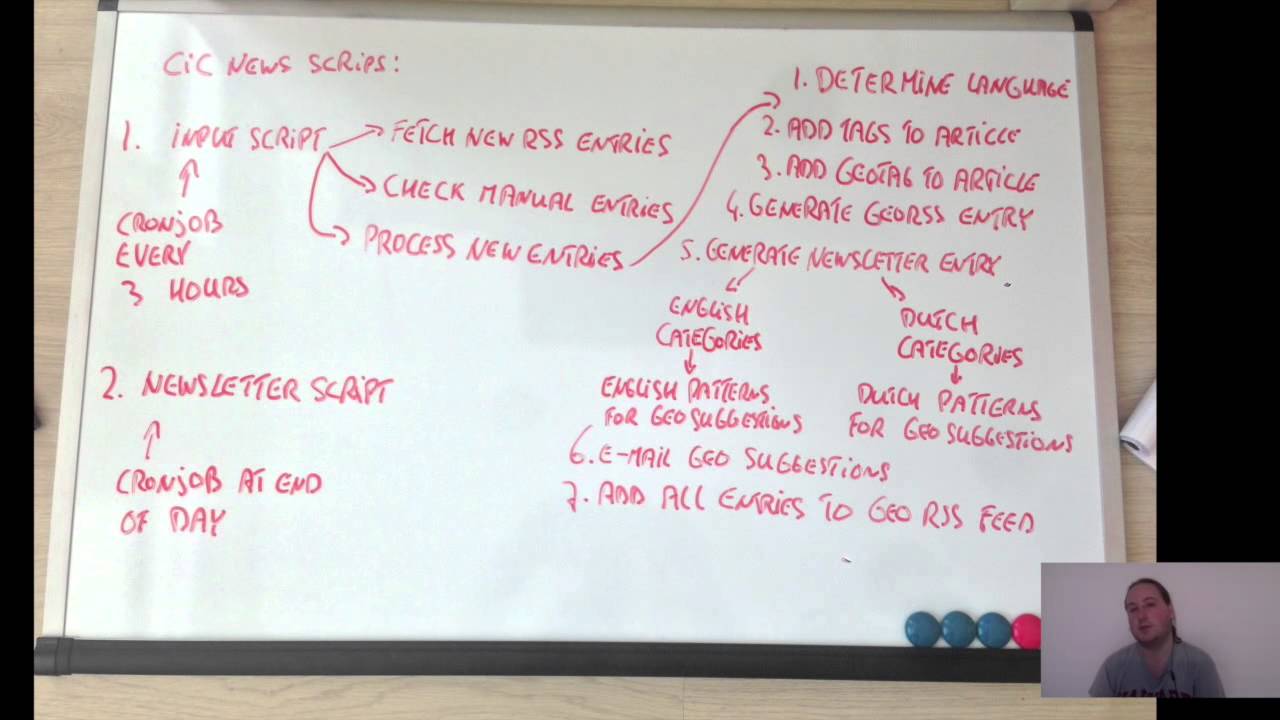 CiC NEWS SCRiPS:
1. iNPUT SCRiPT
FETCH NEW RSS ENTRIES
CHECK MANUAL ENTRiES
PROCESS NEW ENTRiES
CRONJOB
EVERY
3 HOURS
2. NEWSLETTER SCRiPT
CRONJOB AT END
OF DAY
1. DETERMINE LANGUAGE
2. ADD TAGS TO ARTICLE
3. ADD GEOTAG TO ARTICLE
4. GENERATE GEORSS ENTRY
5. GENERATE NEWSLETTER ENTRY
ENGLISH
CATEGORIES
ENGLISH PATTERNS
FOR GEO SUGGESTIONS
DUTCH
CATEGORIES
DUTCH PATTERNS
FOR GEO SUGGESTIONS
6. E-MAIL GEO SUGGESTIONS
7. ADD ALL ENTRIES TO GEO RSS FEED